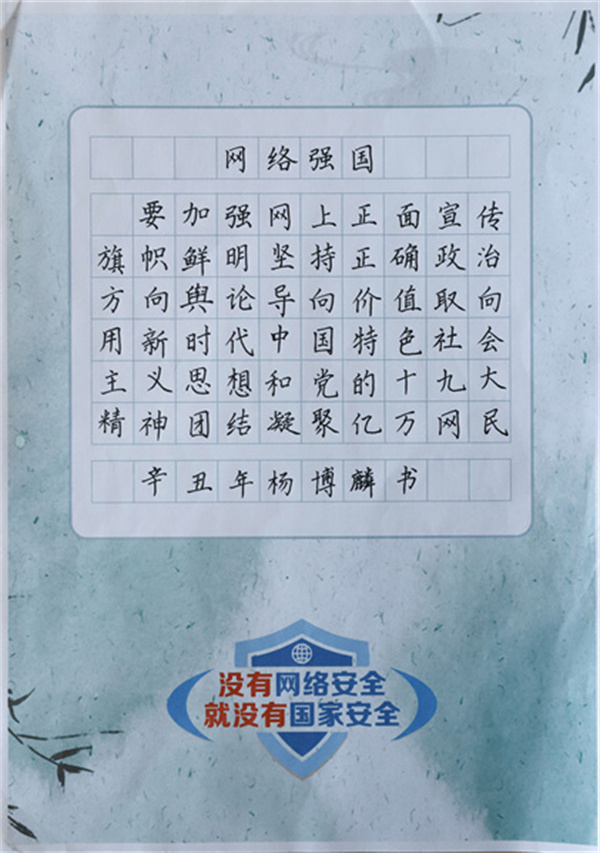 网络强国
要加强网上正面宣传
旗帜鲜明坚持正确政治
方向舆论导向价值取向
用新时代中国特色社会
主义思想和党的十九大
精神团结凝聚亿万网民
辛丑年杨博麟书
没有网络安全
就没有国家安全